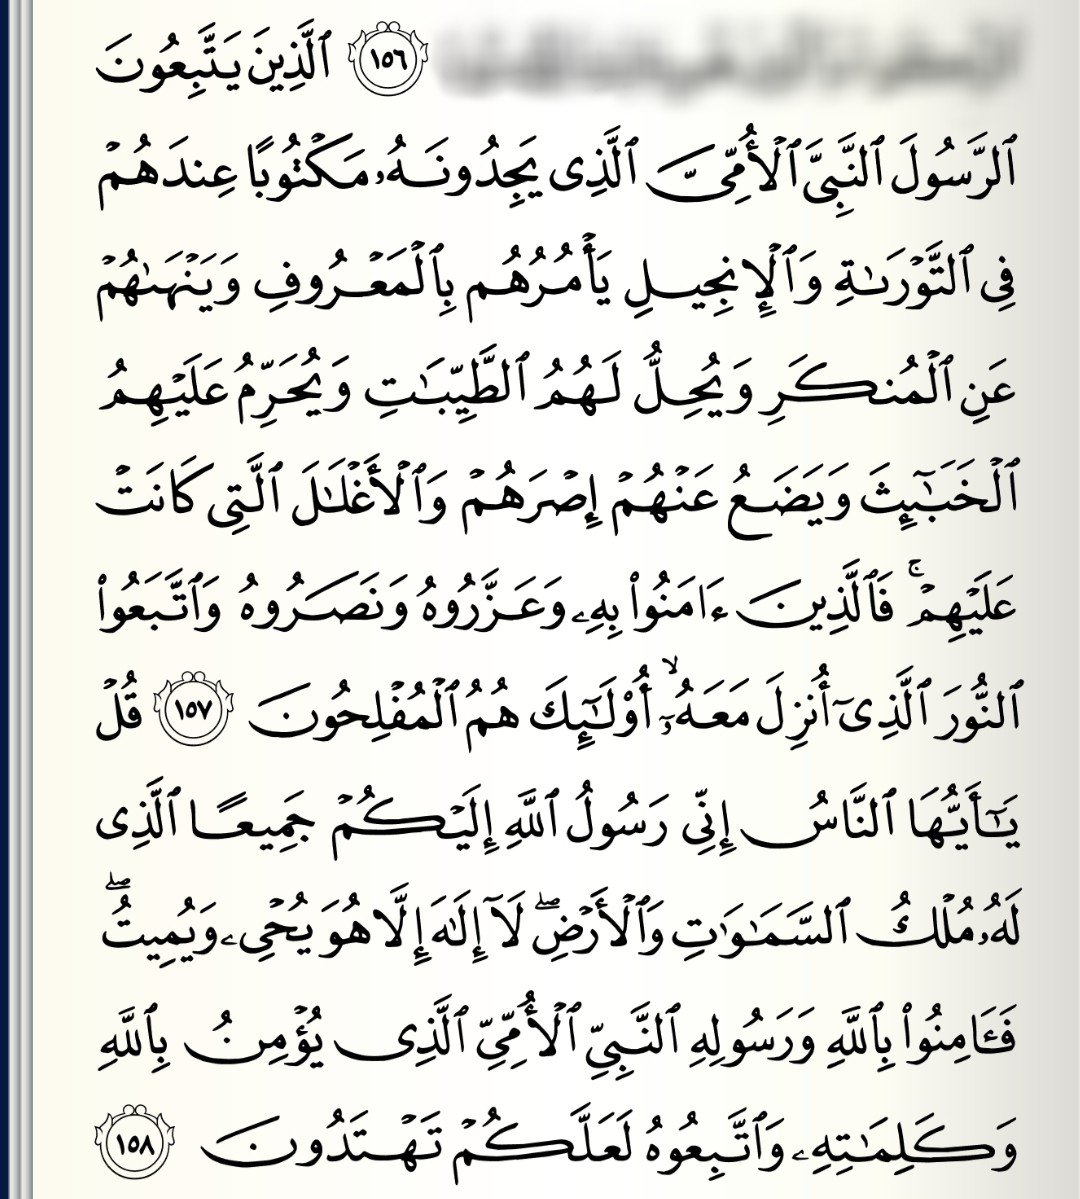 ١٥٦ ٱلَّذِينَ يَتَّبِعُونَ
ٱلرَّسُولَ ٱلنَّبِىَّ ٱلْأُمِّىَّ ٱلَّذِى يَجِدُونَهُۥ مَكْتُوبًا عِندَهُمْ
فِى ٱلتَّوْرَىٰةِ وَٱلْإِنجِيلِ يَأْمُرُهُم بِٱلْمَعْرُوفِ وَيَنْهَىٰهُمْ
عَنِ ٱلْمُنكَرِ وَيُحِلُّ لَهُمُ ٱلطَّيِّبَـٰتِ وَيُحَرِّمُ عَلَيْهِمُ
ٱلْخَبَـٰٓئِثَ وَيَضَعُ عَنْهُمْ إِصْرَهُمْ وَٱلْأَغْلَـٰلَ ٱلَّتِى كَانَتْ
عَلَيْهِمْ ۚ فَٱلَّذِينَ ءَامَنُوا۟ بِهِۦ وَعَزَّرُوهُ وَنَصَرُوهُ وَٱتَّبَعُوا۟
ٱلنُّورَ ٱلَّذِىٓ أُنزِلَ مَعَهُۥٓ ۙ أُو۟لَـٰٓئِكَ هُمُ ٱلْمُفْلِحُونَ ١٥٧ قُلْ
يَـٰٓأَيُّهَا ٱلنَّاسُ إِنِّى رَسُولُ ٱللَّهِ إِلَيْكُمْ جَمِيعًا ٱلَّذِى
لَهُۥ مُلْكُ ٱلسَّمَـٰوَٰتِ وَٱلْأَرْضِ ۖ لَآ إِلَـٰهَ إِلَّا هُوَ يُحْىِۦ وَيُمِيتُ ۖ
فَـَٔامِنُوا۟ بِٱللَّهِ وَرَسُولِهِ ٱلنَّبِىِّ ٱلْأُمِّىِّ ٱلَّذِى يُؤْمِنُ بِٱللَّهِ
وَكَلِمَـٰتِهِۦ وَٱتَّبِعُوهُ لَعَلَّكُمْ تَهْتَدُونَ ١٥٨